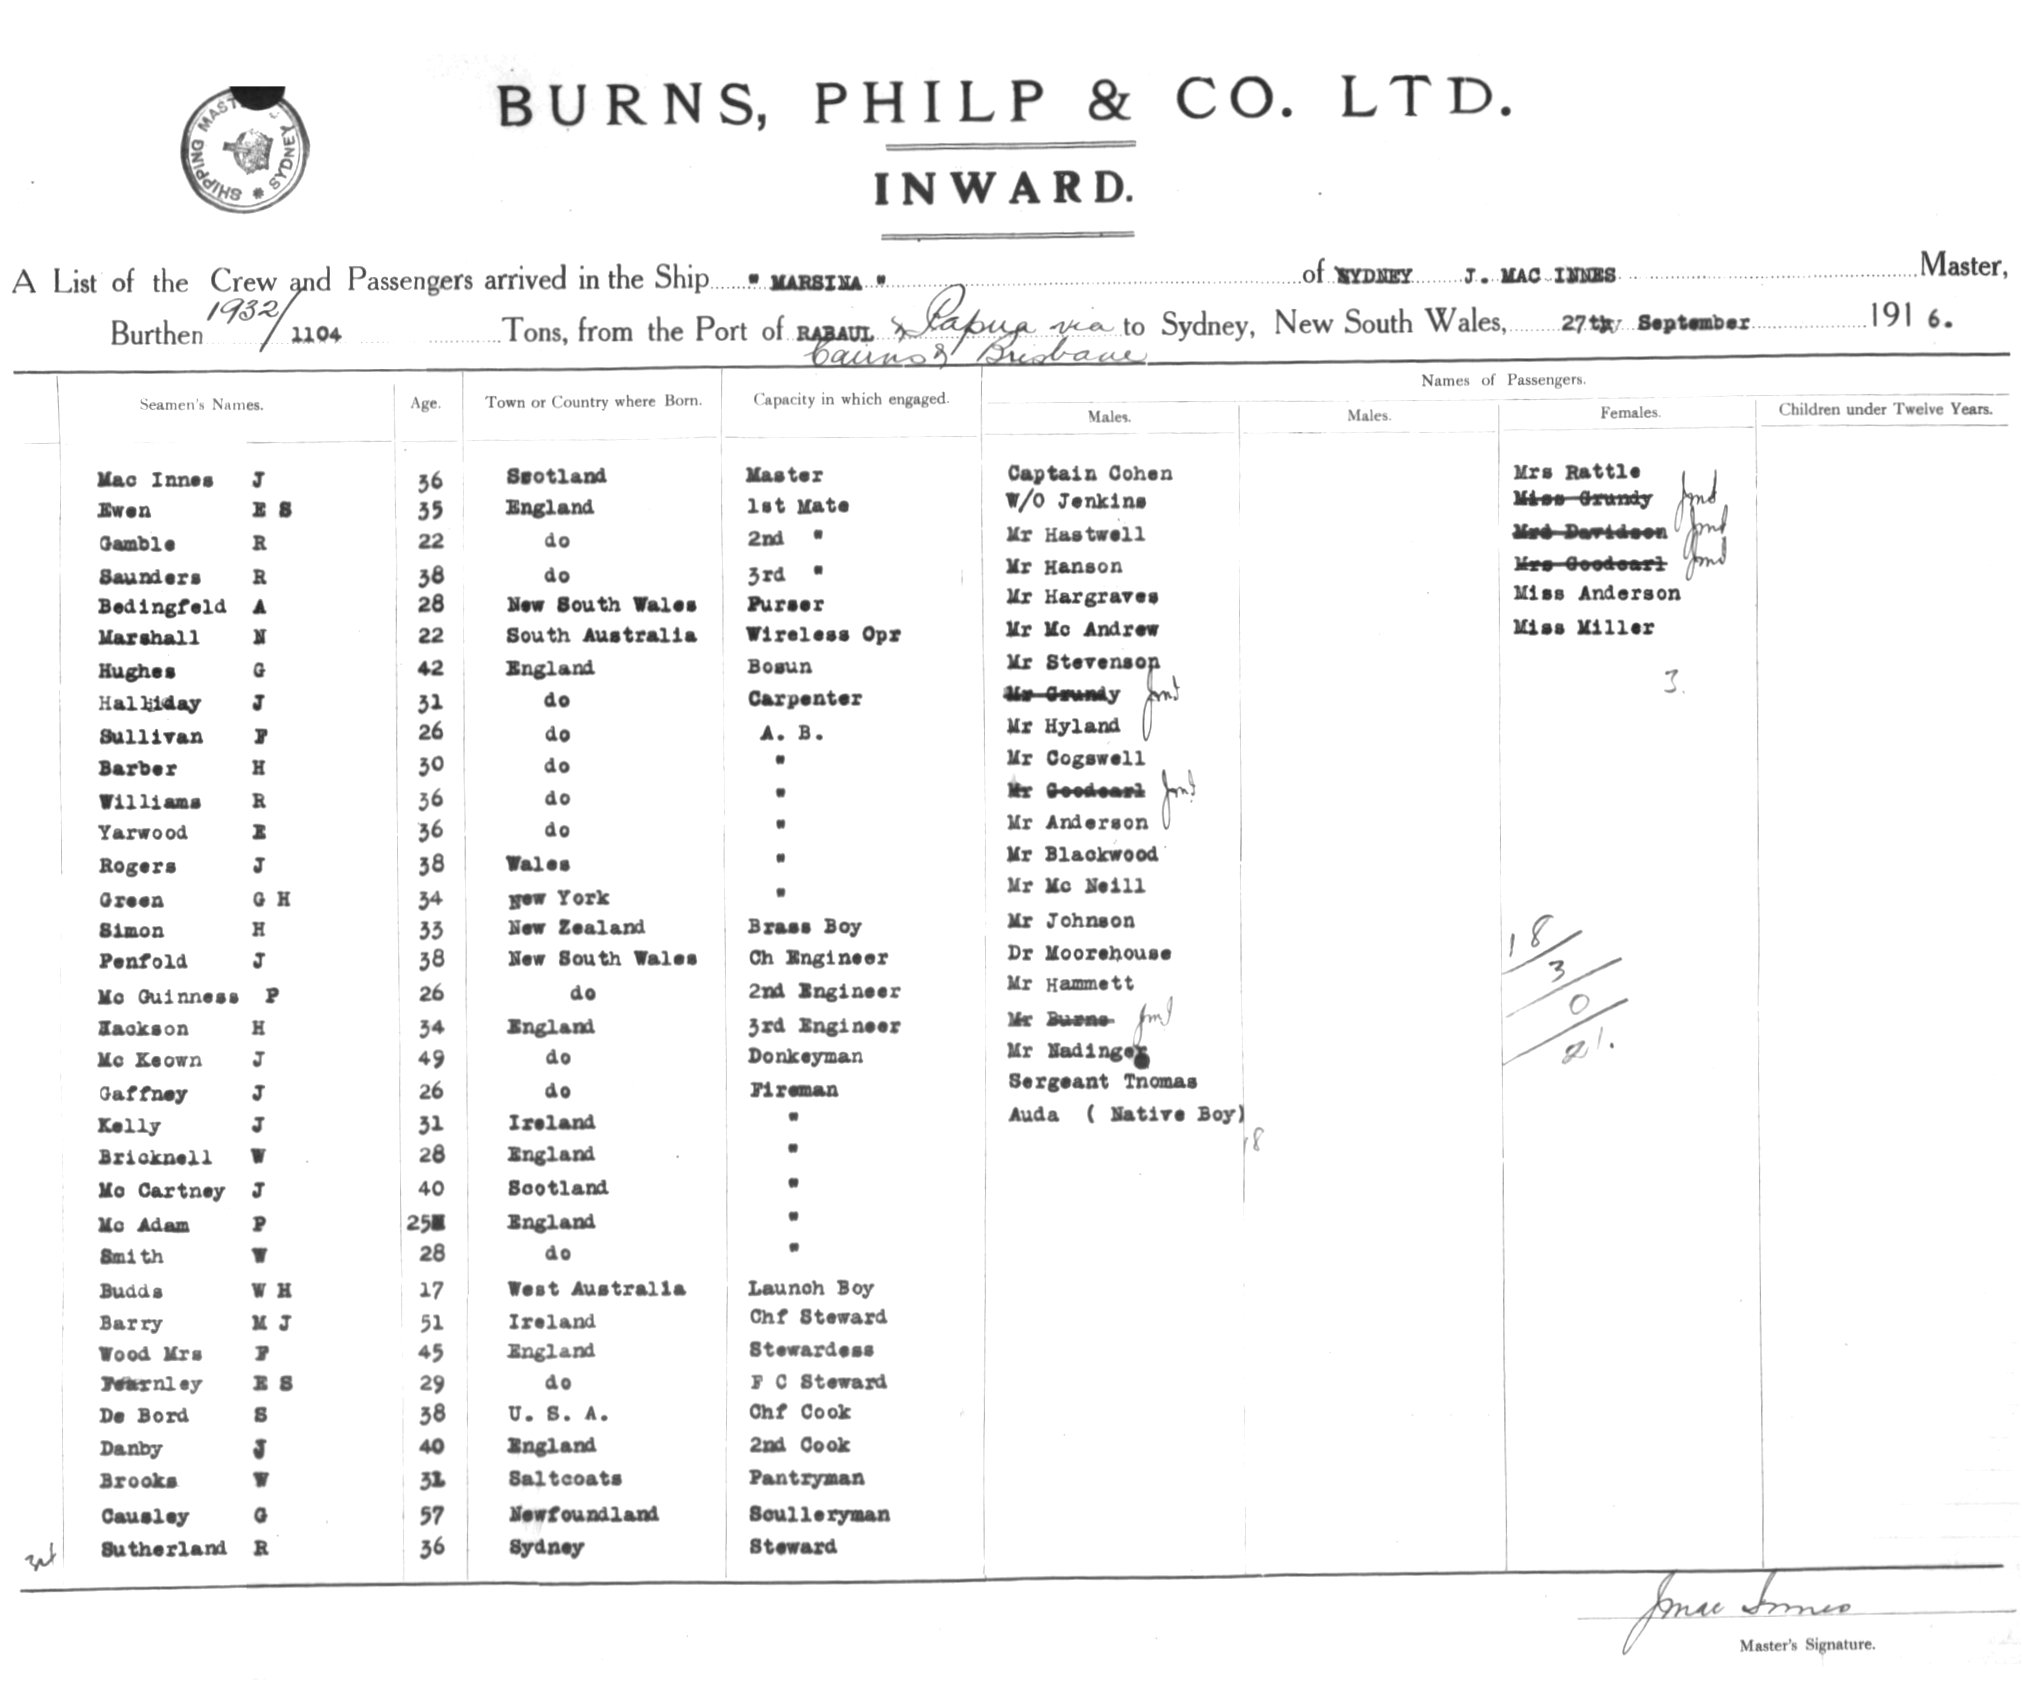 SHIPPING MAST SYDNEY
BURNS, PHILP & CO. LTD.
INWARD.
A List of the Crew and Passengers arrived in the Ship " MARSINA " of SYDNEY J. MAC INNES Master,
Burthen 1932/1104 Tons, from the Port of RABAUL & Papua via to Sydney, New South Wales, 27th September 1916.
Cairns & Brisbane
Names of Passengers.
Seamen's Names. Age. Town or Country where Born. Capacity in which engaged. Males. Males. Females. Children under Twelve Years.
Mac Innes J 36 Scotland Master Captain Cohen Mrs Rattle
Ewen E S 35 England 1st Mate W/O Jenkins Miss Grundy JmI
Gamble R 22 do 2nd " Mr Hastwell Mrd Davidson JmI
Saunders R 38 do 3rd " Mr Hanson Mrs Goodearl JmI
Bedingfeld A 28 New South Wales Purser Mr Hargraves Miss Anderson
Marshall N 22 South Australia Wireless Opr Mr Mc Andrew Miss Miller
Hughes G 42 England Bosun Mr Stevenson 3.
Halliday J 31 do Carpenter Mr Grundy JmI
Sullivan F 26 do A. B. Mr Hyland
Barber H 30 do " Mr Cogswell
Williams R 36 do " Mr Goodearl JmI
Yarwood E 36 do " Mr Anderson
Rogers J 38 Wales " Mr Blackwood
Green G H 34 New York " Mr Mc Neill
Simon H 33 New Zealand Brass Boy Mr Johnson 18
Penfold J 38 New South Wales Ch Engineer Dr Moorehouse 3
Mc Guinness P 26 do 2nd Engineer Mr Hammett 0
Hackson H 34 England 3rd Engineer Mr Burns JmI 21.
Mc Keown J 49 do Donkeyman Mr Nadinger
Gaffney J 26 do Fireman Sergeant Tnomas
Kelly J 31 Ireland " Auda ( Native Boy)
Bricknell W 28 England " 18
Mc Cartney J 40 Scotland "
Mc Adam P 25 England "
Smith W 28 do "
Budds W H 17 West Australia Launch Boy
Barry M J 51 Ireland Chf Steward
Wood Mrs F 45 England Stewardess
Fearnley E S 29 do F C Steward
De Bord S 38 U. S. A. Chf Cook
Danby J 40 England 2nd Cook
Brooks W 31 Saltcoats Pantryman
Causley G 57 Newfoundland Sculleryman
Sutherland R 36 Sydney Steward
J Mac Innes
Master's Signature.